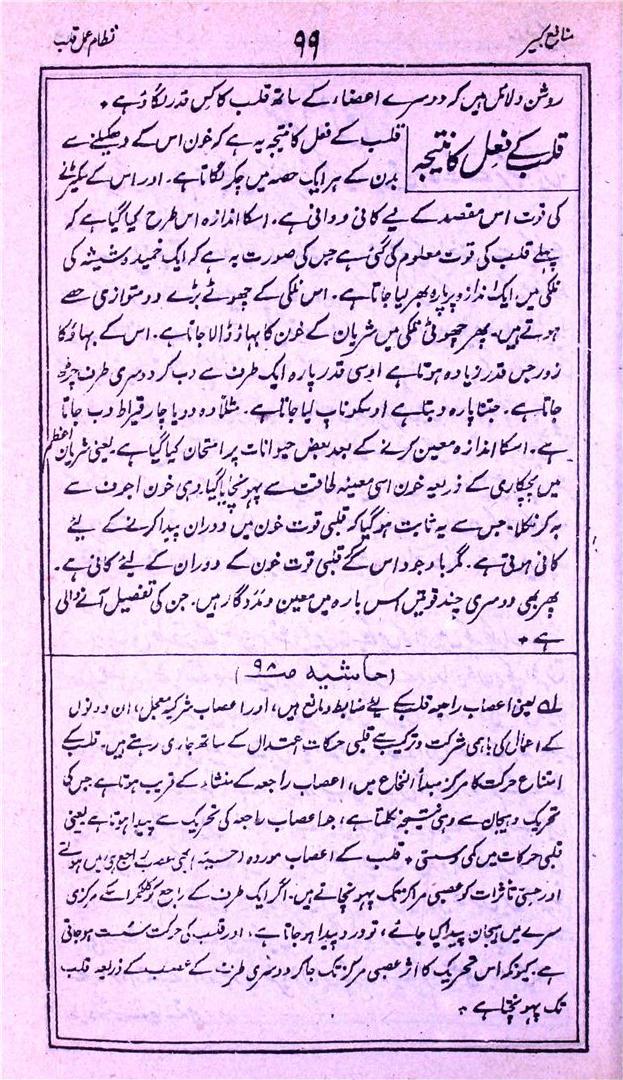 منافع کبیر
۹۹
نظام عمل قلب
روشن دلائل ہیں کہ دوسرے اعضاء کے ساتھ قلب کا کس قدر لگاؤ ہے ۔
قلب کے فعل کا نتیجہ
قلب کے فعل کا نتیجہ یہ ہے کہ خون اس کے دھکیلنے سے
بدن کے ہر ایک حصہ میں چکر لگاتا ہے۔ اور اس کے سکیڑنے
کی قوت اس مقصد کے لیے کافی و وافی ہے۔ اسکا اندازہ اس طرح کیا گیا ہے کہ
پہلے قلب کی قوت معلوم کی گئی ہے جس کی صورت یہ ہے کہ ایک خمیدہ شیشہ کی
نلکی میں ایک اندازہ پر پارہ بھر لیا جاتا ہے۔ اس نلکی کے چھوٹے بڑے دو متوازی حصے
ہوتے ہیں۔ پھر چھوٹی نلکی میں شریان کے خون کا بہاؤ ڈالا جاتا ہے۔ اس کے بہاؤ کا
زور جس قدر زیادہ ہوتا ہے اوسی قدر پارہ ایک طرف سے دب کر دوسری طرف چڑھ
جاتا ہے۔ جتنا پارہ دبتا ہے اوسکو ناپ لیا جاتا ہے۔ مثلاً وہ دو یا چار قیراط دب جاتا
ہے۔ اسکا اندازہ معین کرنے کے بعد بعض حیوانات پر امتحان کیا گیا ہے یعنی شریان اعظم
میں پچکاری کے ذریعہ خون اسی معینہ طاقت سے پہونچایا گیا۔ وہی خون اجوف سے
بہ کر نکلا۔ جس سے یہ ثابت ہو گیا کہ قلبی قوت خون میں دوران پیدا کرنے کے لئے
کافی ہوتی ہے۔ مگر باوجود اس کے قلبی قوت خون کے دوران کے لئے کافی ہے۔
پھر بھی دوسری چند قوتیں اس بارہ میں معین و مددگار ہیں۔ جن کی تفصیل آنے والی
ہے ۔
(حاشیہ ص۹۸)
لہ یعنی اعصاب راجعہ قلب کے لئے ضابط و مانع ہیں، اور اعصاب شرکیہ معجل، ان دونوں
کے اعمال کی باہمی شرکت و ترکیب سے قلبی حرکات اعتدال کے ساتھ جاری رہتے ہیں۔ قلب کے
امتناع حرکت کا مرکز مبدأ النخاع میں، اعصاب راجعہ کے منشاء کے قریب ہوتا ہے جس کی
تحریک و ہیجان سے وہی نتیجہ نکلتا ہے، جو اعصاب راجعہ کی تحریک سے پیدا ہوتا ہے یعنی
قلبی حرکات میں کمی و سستی ۔ قلب کے اعصاب موردہ (حسیہ) بھی عصب راجع ہی میں ہوتے
اور حسی تأثرات کو عصبی مراکز تک پہونچاتے ہیں۔ اگر ایک طرف کے راجع کو کاٹکر اسکے مرکزی
سرے میں ہیجان پیدا کیا جائے، تو درد پیدا ہو جاتا ہے، اور قلب کی حرکت سست ہو جاتی
ہے کیونکہ اس تحریک کا اثر عصبی مرکز تک جا کر دوسری طرف کے عصب کے ذریعہ قلب
تک پہونچتا ہے ۔